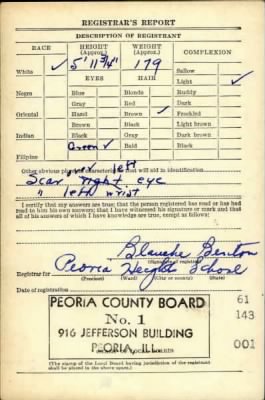 REGISTRAR'S REPORT
DESCRIPTION OF REGISTRANT
RACE HEIGHT (Approx.) WEIGHT (Approx.) COMPLEXION
5' 11 3/4" 179
White ✓ EYES HAIR Sallow
Light ✓
Negro Blue Blonde Ruddy
Gray Red Dark
Oriental Hazel Brown ✓ Freckled
Brown Black Light brown
Indian Black Gray Dark brown
Green ✓ Bald Black
Filipino
over left
Other obvious physical characteristics that will aid in identification
Scar right eye
" left wrist
I certify that my answers are true; that the person registered has read or has had
read to him his own answers; that I have witnessed his signature or mark and that
all of his answers of which I have knowledge are true, except as follows:
Blanche Benton
(Signature of registrar)
Peoria Heights School
Registrar for
(Precinct) (Ward) (City or county) (State)
Date of registration
PEORIA COUNTY BOARD
No. 1
916 JEFFERSON BUILDING
PEORIA, ILL.
61
143
001
(The stamp of the Local Board having jurisdiction of the registrant
shall be placed in the above space.)